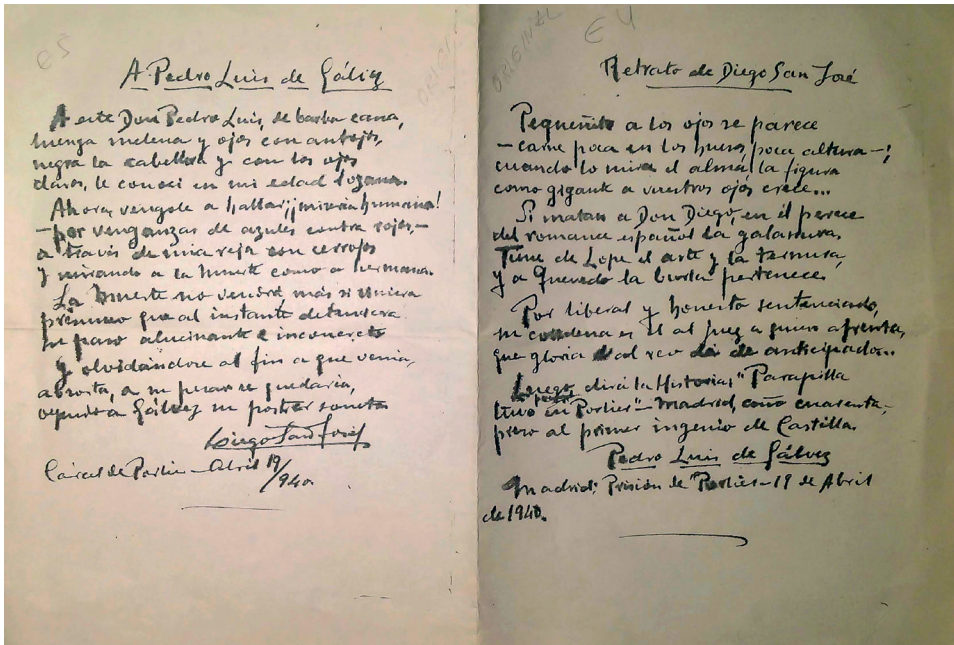 e5
A Pedro Luis de Gálvez
A este Don Pedro Luis, de barba cana,
luenga melena y ojos con antojos,
negra la cabellera y con los ojos
claros, le conocí en mi edad lozana.
Ahora, vengole a hallar, ¡¡miseria humana!
—por venganzas de azules contra rojos,—
a través de una reja con cerrojos
y mirando a la muerte como a hermana.
La Muerte no vendrá más si viniera
presumo que al instante detuviera
su paso alucinante e inconcreto
y olvidándose al fin a que venía,
absorta, a su pesar se quedaría,
oyendo a Gálvez su postrer soneto
Diego San José
Cárcel de Porlier—Abril 19/940.
ORIGINAL
E4
Retrato de Diego San José
Pequeñito a los ojos se parece
—carne poca en los huesos, poca altura—;
cuando lo mira el alma, la figura
como gigante a vuestros ojos crece...
Si matan a Don Diego, en él perece
del romance español la galanura.
Tiene de Lope el arte y la ternura,
y a Quevedo la burla pertenece.
Por liberal y honesto sentenciado,
su condena es él al juez a quien afrenta,
que gloria al reo da de anticipado...
Luego, dirá la Historia: "Parapilla
tuvo en Porlier"—Madrid, año cuarenta,—
preso al primer ingenio de Castilla.
Pedro Luis de Gálvez
Madrid; Prisión de "Porlier—19 de Abril
de 1940.